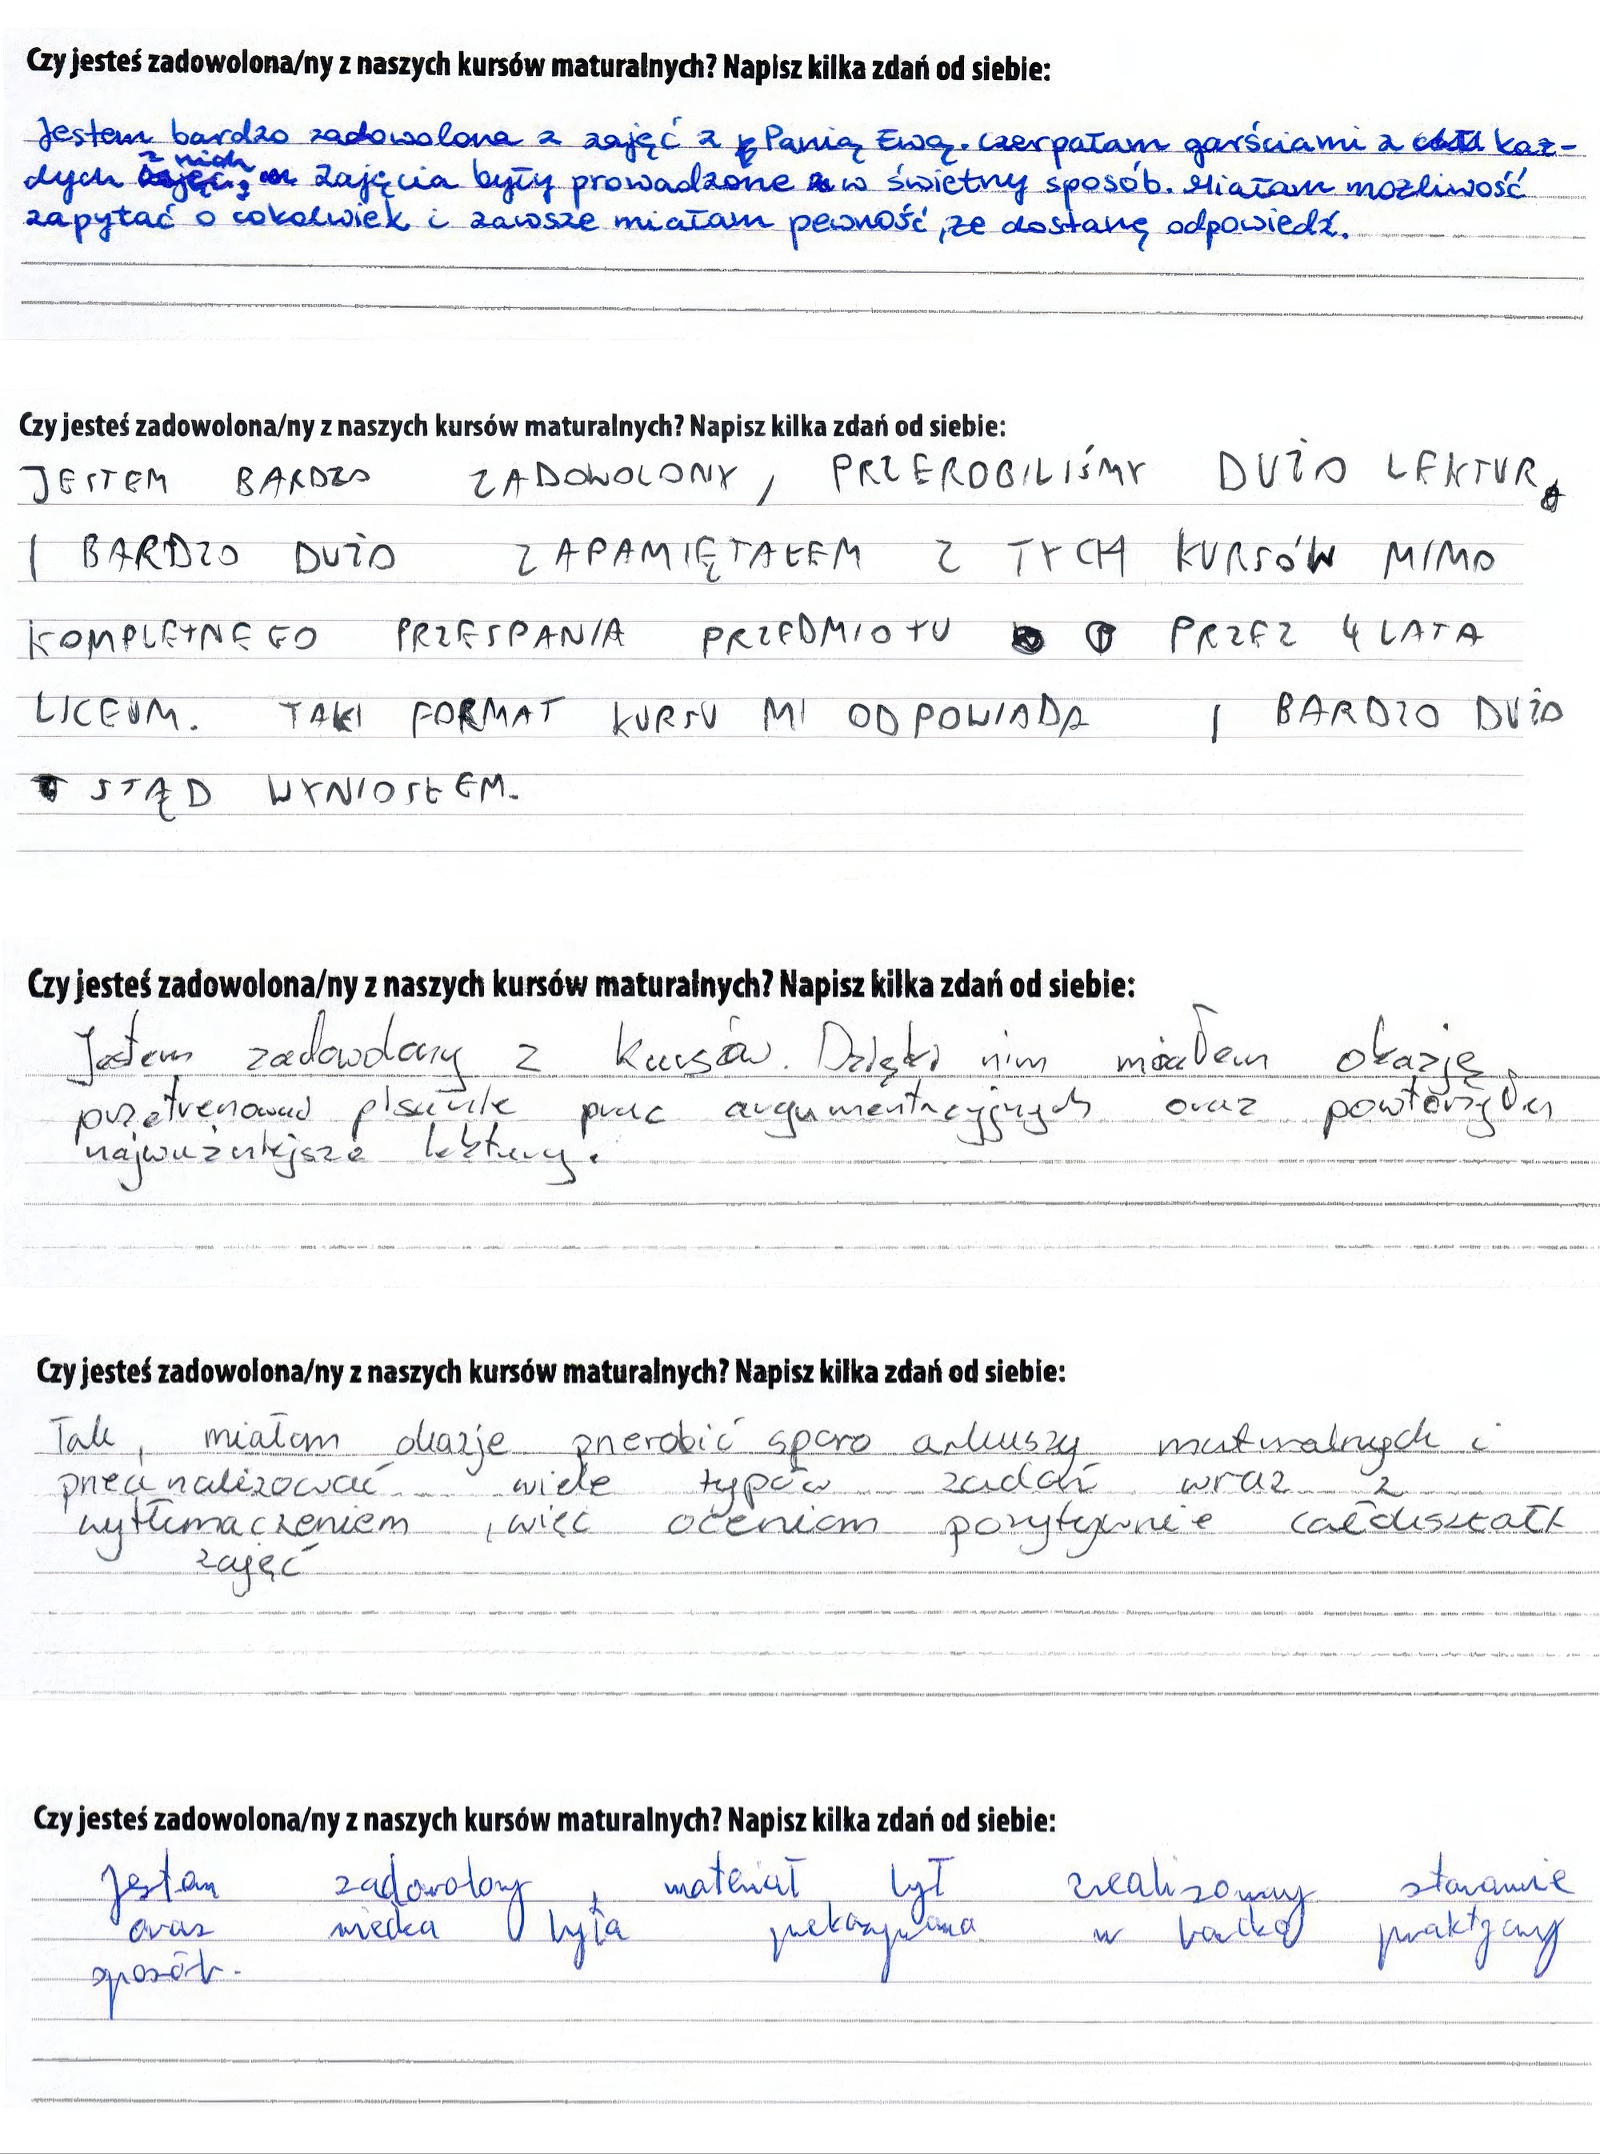 Czy jesteś zadowolona/ny z naszych kursów maturalnych? Napisz kilka zdań od siebie:
Jestem bardzo zadowolona z zajęć z Panią Ewą. Czerpałam garściami z każ-
dych z nich Zajęcia były prowadzone w świetny sposób. Miałam możliwość
zapytać o cokolwiek i zawsze miałam pewność, że dostanę odpowiedź.
Czy jesteś zadowolona/ny z naszych kursów maturalnych? Napisz kilka zdań od siebie:
JESTEM BARDZO ZADOWOLONY, PRZEROBILIŚMY DUŻO LEKTUR
I BARDZO DUŻO ZAPAMIĘTAŁEM Z TYCH KURSÓW MIMO
KOMPLETNEGO PRZESPANIA PRZEDMIOTU PRZEZ 4 LATA
LICEUM. TAKI FORMAT KURSU MI ODPOWIADA I BARDZO DUŻO
STĄD WYNIOSŁEM.
Czy jesteś zadowolona/ny z naszych kursów maturalnych? Napisz kilka zdań od siebie:
Jestem zadowolony z kursów. Dzięki nim miałem okazję
przetrenować pisanie prac argumentacyjnych oraz powtórzyłem
najważniejsze lektury.
Czy jesteś zadowolona/ny z naszych kursów maturalnych? Napisz kilka zdań od siebie:
Tak, miałam okazje przerobić sporo arkuszy maturalnych i
przeanalizować wiele typów zadań wraz z
wytłumaczeniem, więc oceniam pozytywnie całokształt
zajęć
Czy jesteś zadowolona/ny z naszych kursów maturalnych? Napisz kilka zdań od siebie:
Jestem zadowolony, materiał był zrealizowany starannie
oraz wiedza była przekazywana w bardzo praktyczny
sposób.